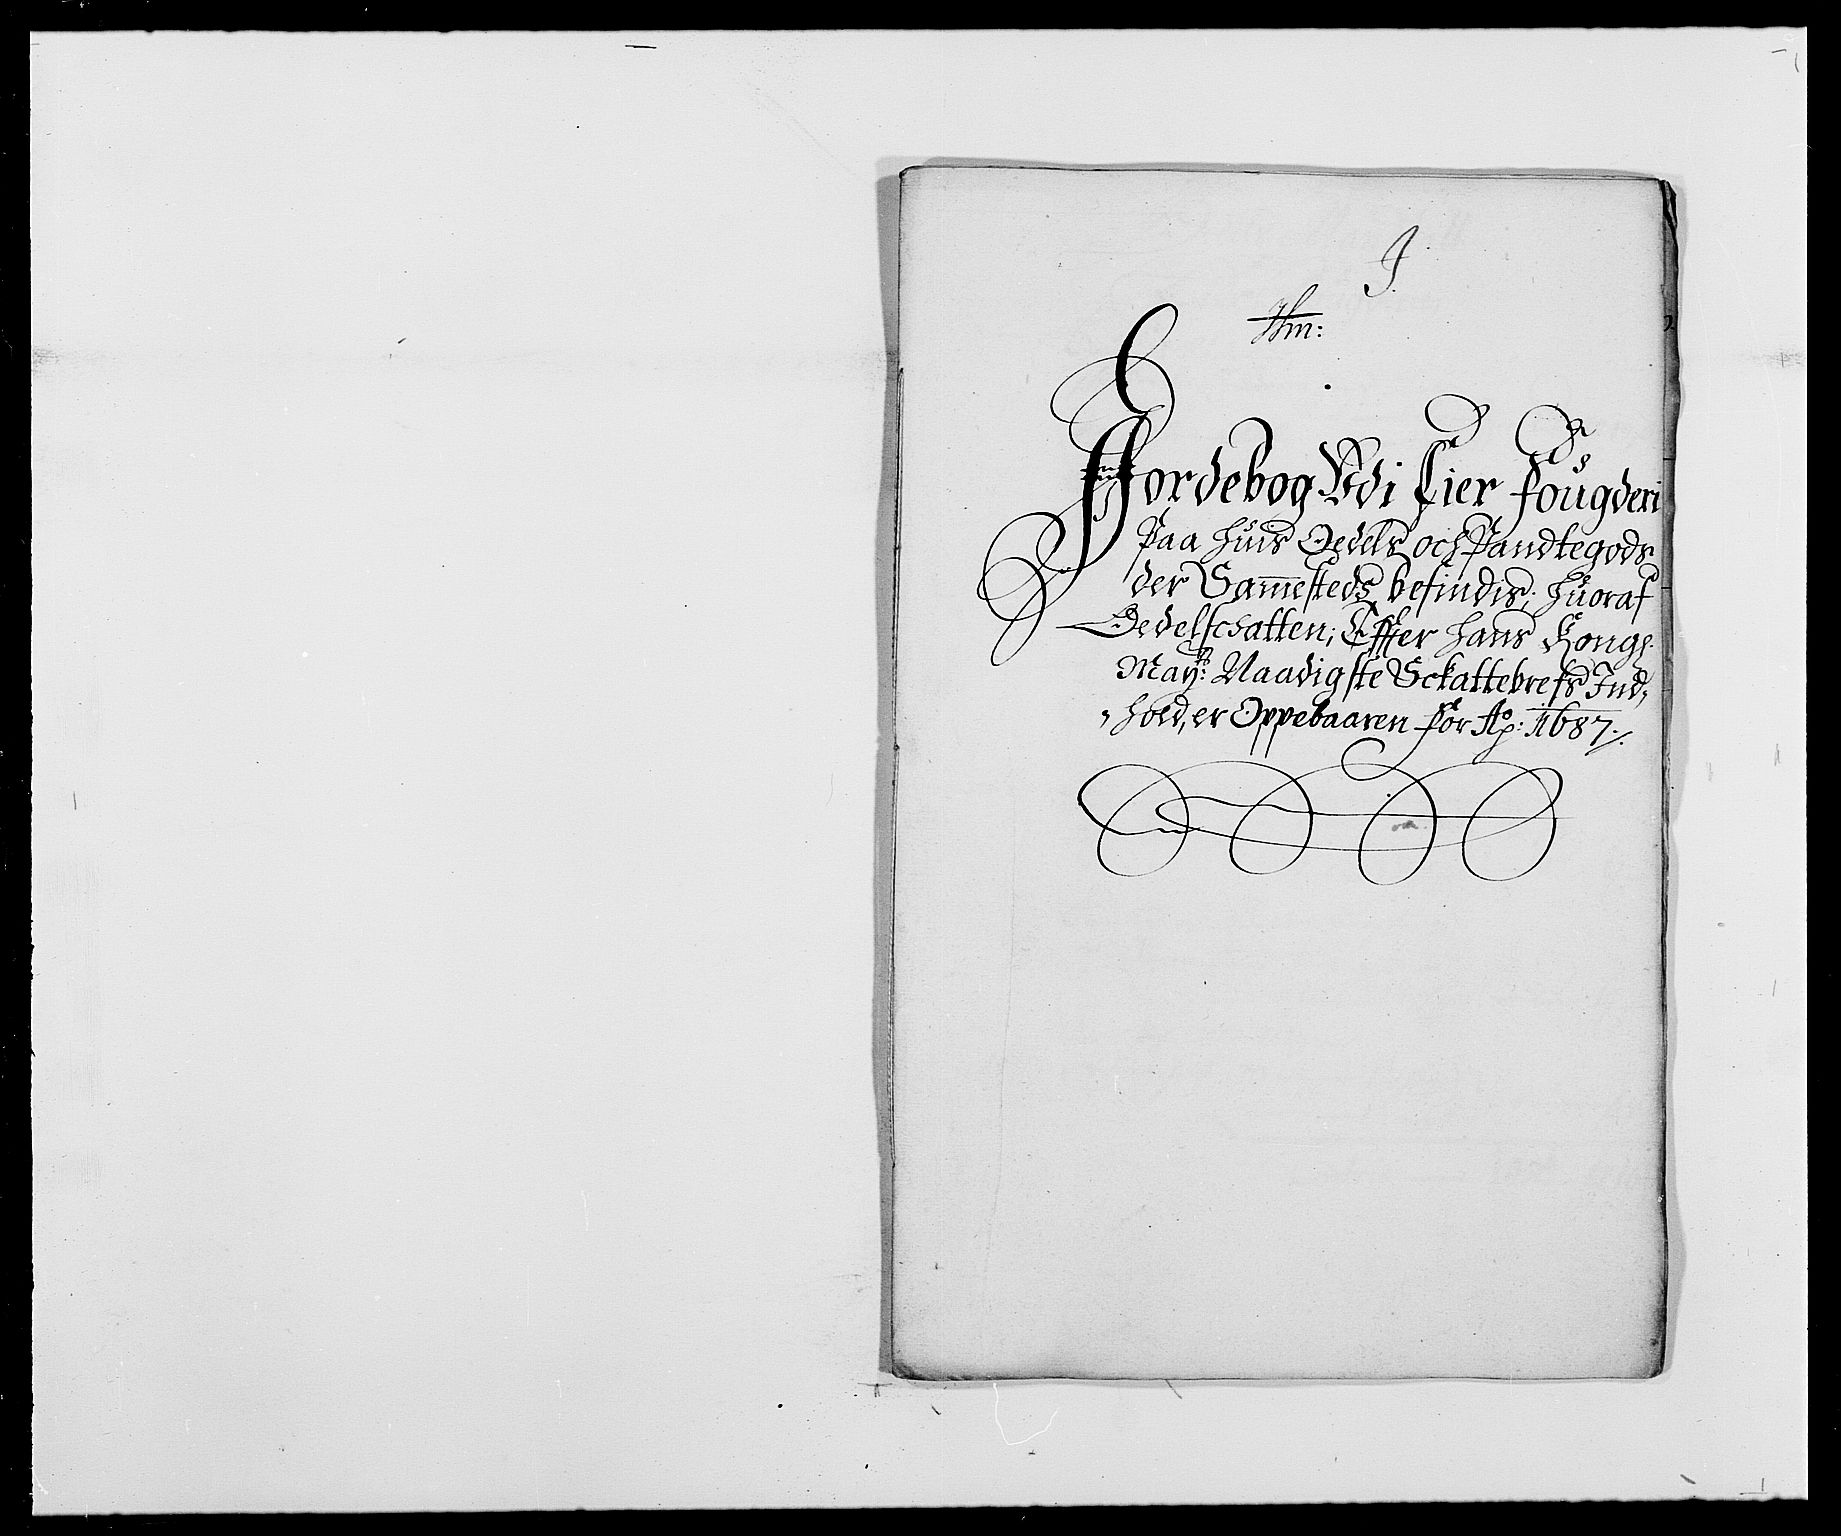 J.
Hm:
Jordebog Udi Lier Fougderi
Paa huis Oedels och Pandtegods
der Sam̄esteds befindis; huoraf
Oedelschatten; Effter hans Kongl.
Mayts: Naadigste Sckattebrefs Ind,
,hold, er Oppebaaren for Ao: 1687./.